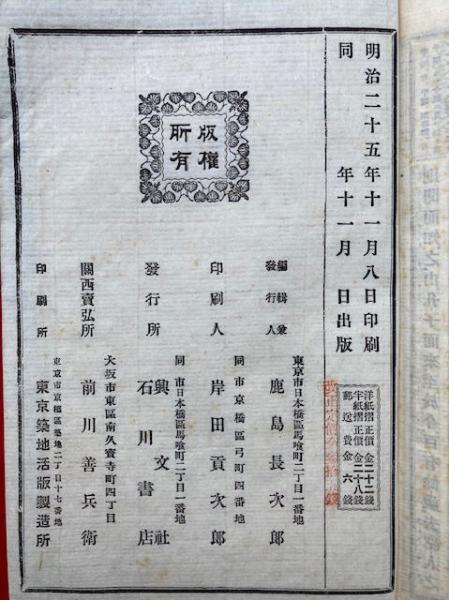 明治二十五年十一月八日印刷
同　　　年十一月　日出版
版權
所有
洋紙摺正價金二十二錢
半紙摺正價金二十八錢
郵送費金六錢
東京市日本橋區馬喰町二丁目一番地
編輯兼
發行人
鹿島長次郎
同市京橋區弓町四番地
印刷人
岸田貢次郎
同市日本橋區馬喰町二丁目一番地
發行所
興文社
石川書店
大坂市東區南久寳寺町四丁目
關西賣弘所
前川善兵衛
東京市京橋區築地二丁目十七番地
印刷所
東京築地活版製造所